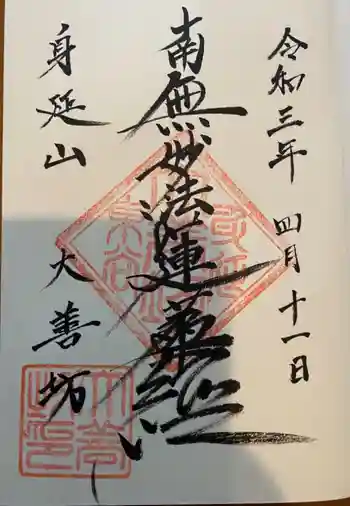 令和三年 四月 十一日
南無妙法蓮華経
身延山 大善坊